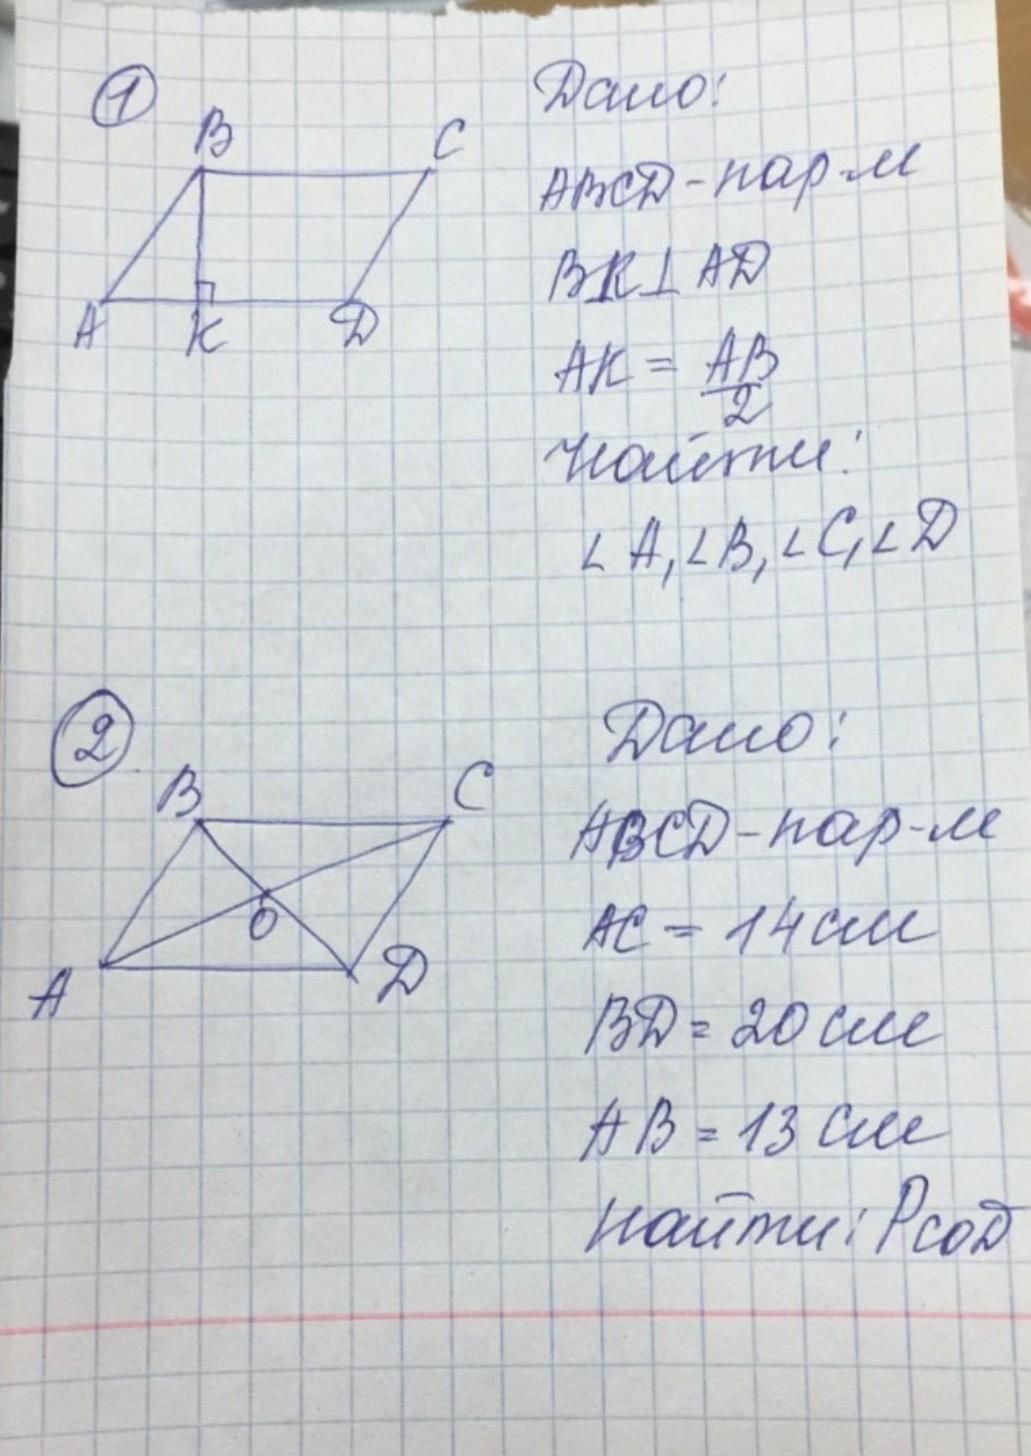 1
B C
A K D
Дано:
ABCD - пар-м
BK ⊥ AD
AK = AB/2
Найти:
∠A, ∠B, ∠C, ∠D
2
B C
O
A D
Дано:
ABCD - пар-м
AC = 14 см
BD = 20 см
AB = 13 см
Найти: PCOD